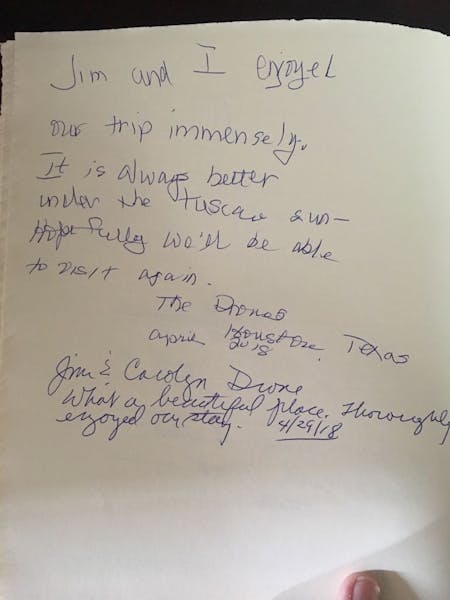 Jim and I enjoyed
our trip immensely.
It is always better
under the Tuscan sun—
Hopefully we'll be able
to visit again.
The Drones
April Houston, Texas
2018
Jim & Carolyn Drone
What a beautiful place. Thoroughly
enjoyed our stay. 4/29/18